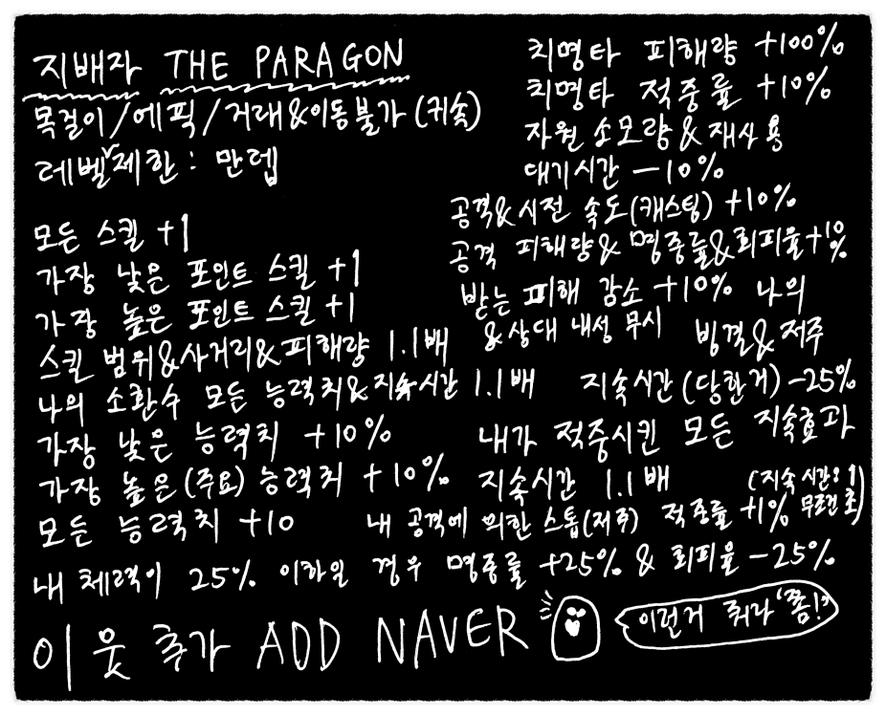 지배자 THE PARAGON
목걸이/에픽/거래&이동불가(귀속)
레벨제한: 만렙
모든 스킬 +1
가장 낮은 포인트 스킬 +1
가장 높은 포인트 스킬 +1
스킬 범위&사거리&피해량 1.1배
나의 소환수 모든 능력치&지속시간 1.1배
가장 낮은 능력치 +10%
가장 높은(주요) 능력치 +10%
모든 능력치 +10
치명타 피해량 +100%
치명타 적중률 +10%
자원 소모량&재사용
대기시간 -10%
공격&시전 속도(캐스팅) +10%
공격 피해량&명중률&회피율+10%
받는 피해 감소 +10%
&상대 내성 무시
나의
빙결&저주
지속시간(당한거)-25%
내가 적중시킨 모든 지속효과
지속시간 1.1배
내 공격에 의한 스톱(저주) 적중률 +1%
(지속시간: 1
무조건 초)
내 체력이 25% 이하일 경우 명중률 +25% & 회피율 -25%
이웃추가 ADD NAVER
이런거 줘라 '쫌!?